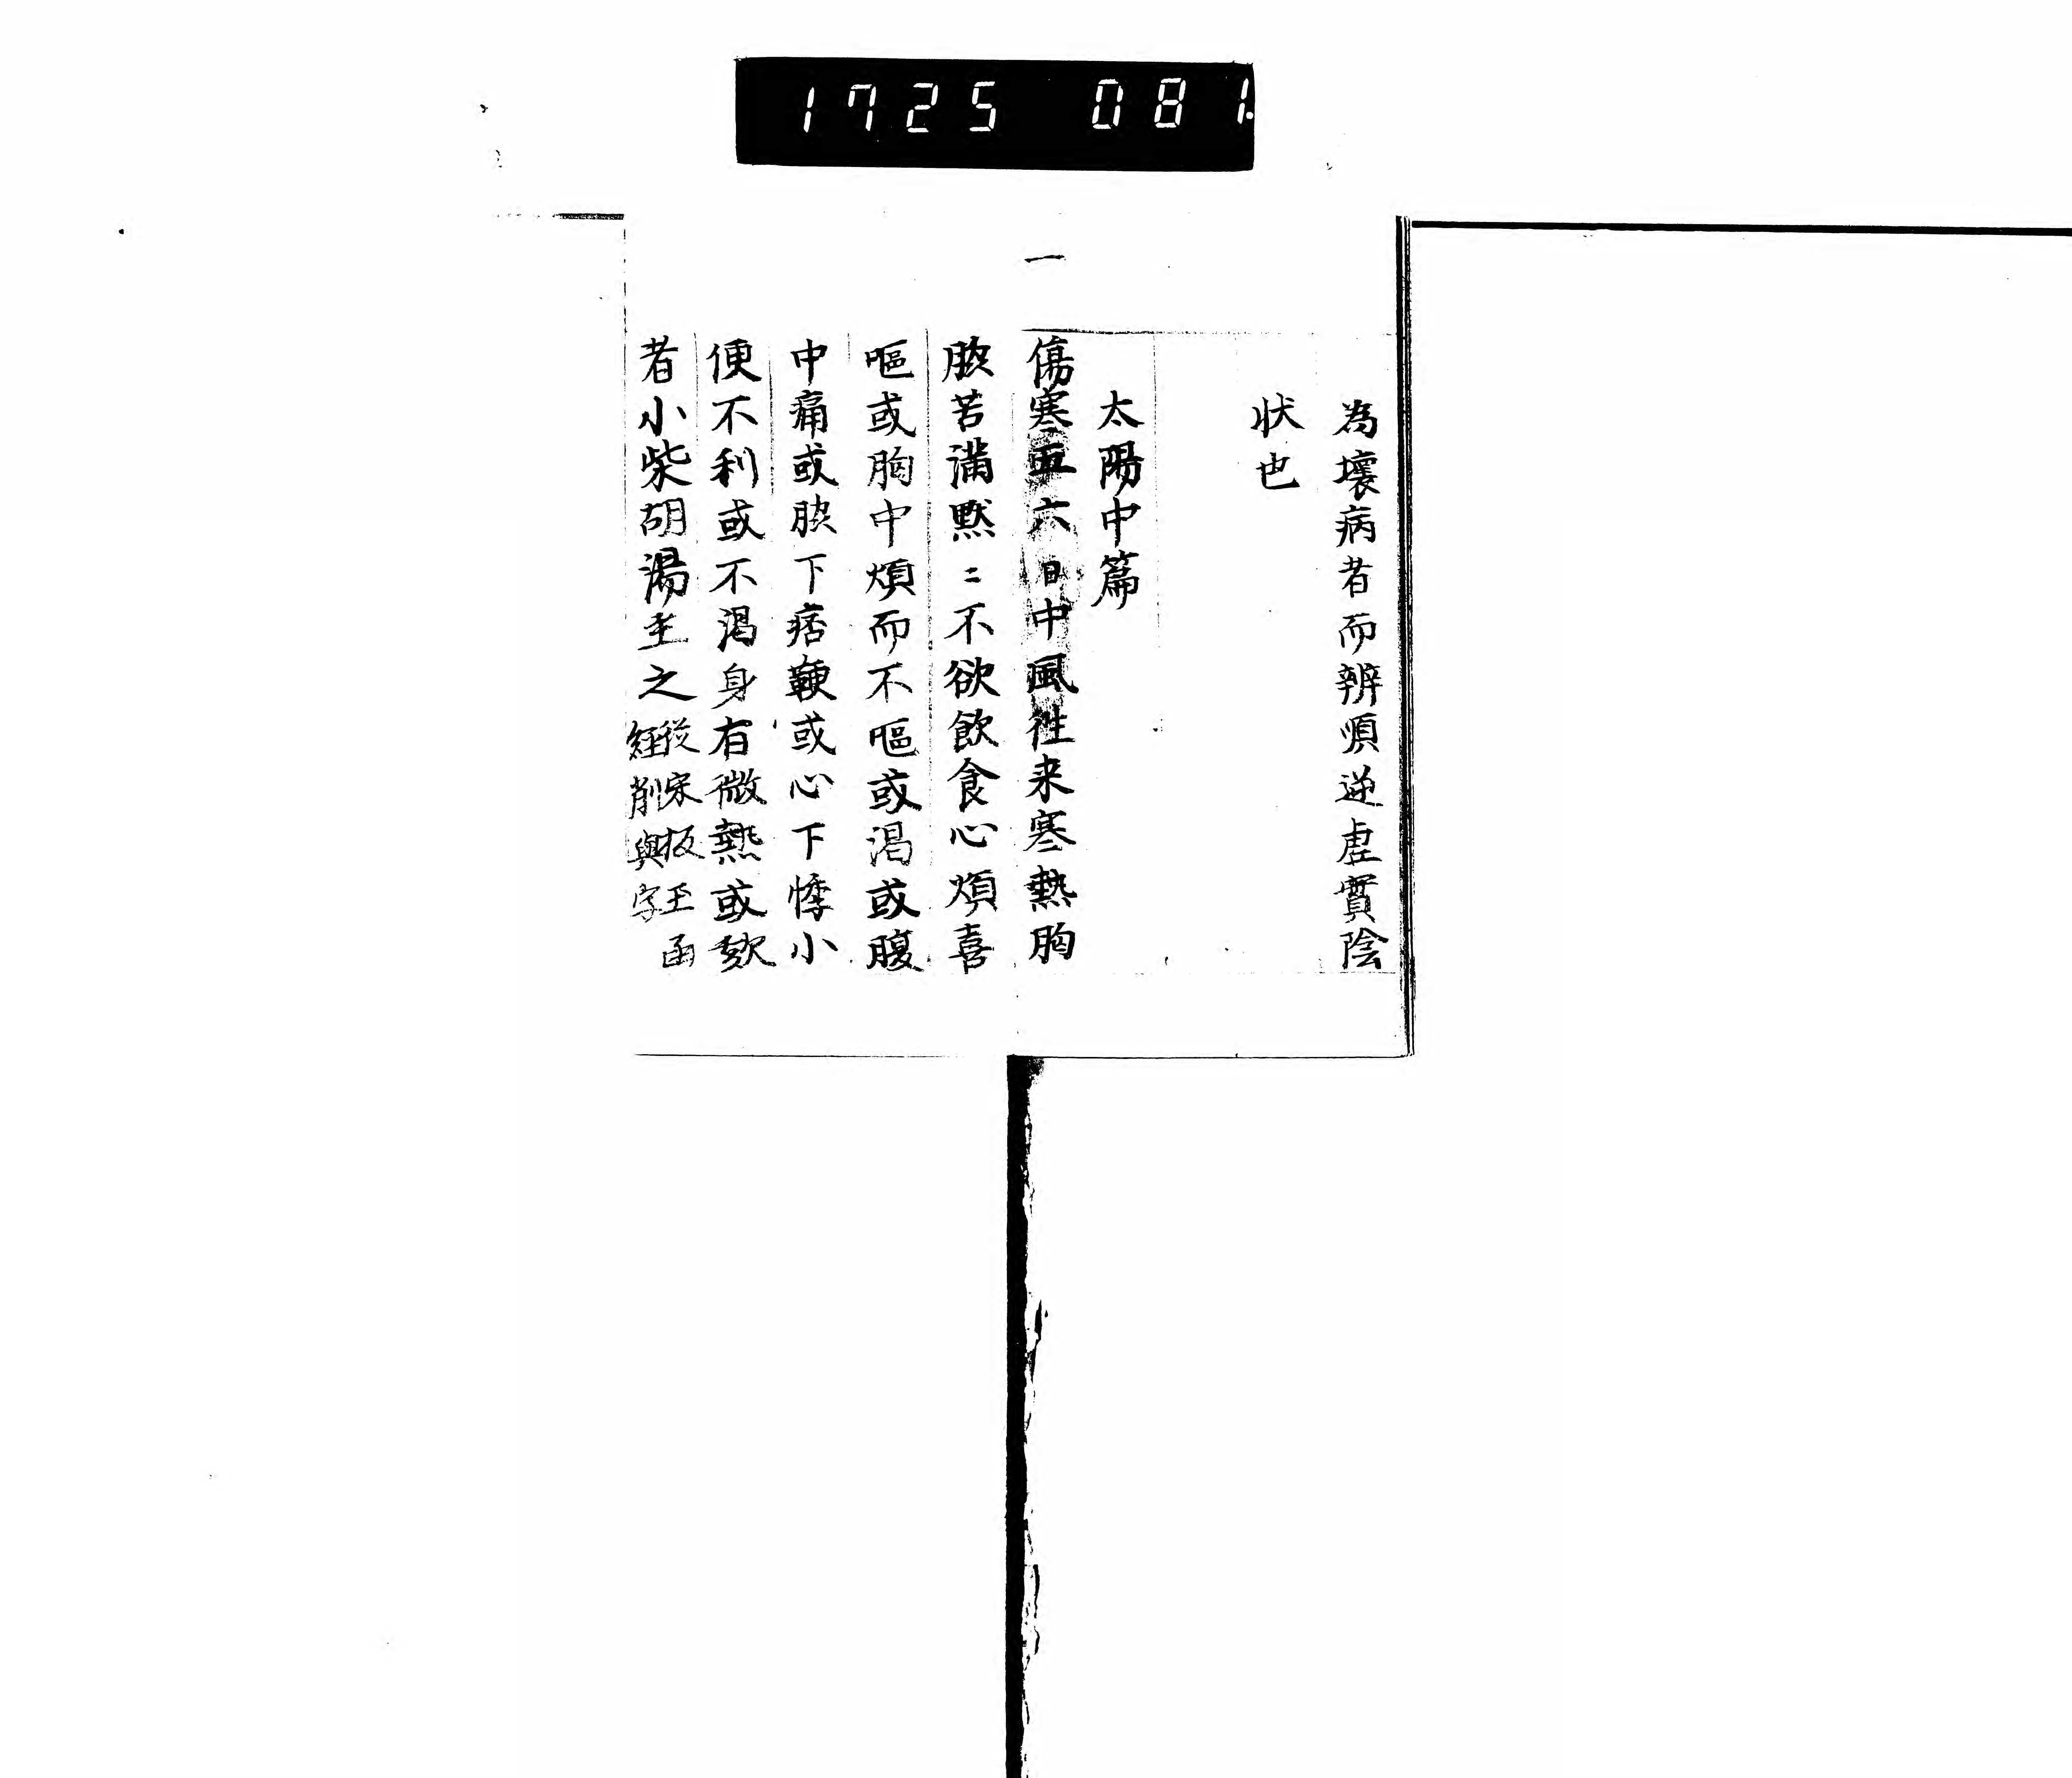 1725 081.
為壞病者而辨順逆虛實陰
状也
太陽中篇
一
傷寒五六日中風往来寒熱胸
脇苦滿黙〻不欲飲食心煩喜
嘔或胸中煩而不嘔或渴或腹
中痛或脇下痞鞕或心下悸小
便不利或不渴身有微熱或欬
者小柴胡湯主之
從宋板玉函
經削與字